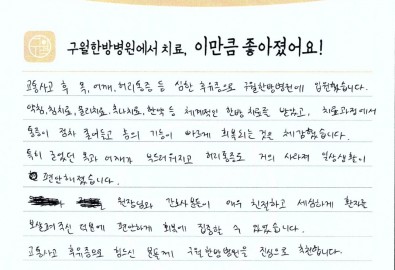 구월한방병원에서 치료, 이만큼 좋아졌어요!
교통사고 후 목, 어깨, 허리통증 등 심한 후유증으로 구월한방병원에 입원했습니다.
약침, 침치료, 물리치료, 추나치료, 한약 등 체계적인 한방 치료를 받았고, 치료과정에서
통증이 점차 줄어들고 몸의 기능이 빠르게 회복되는 것을 체감했습니다.
특히 굳었던 목과 어깨가 부드러워지고 허리통증도 거의 사라져 일상생활이
편안해졌습니다.
원장님과 간호사분들이 매우 친절하고 세심하게 환자를
보살펴주신 덕분에 편안하게 회복에 집중할 수 있었습니다.
교통사고 후유증으로 힘드신 분들께 구월한방병원을 진심으로 추천합니다.